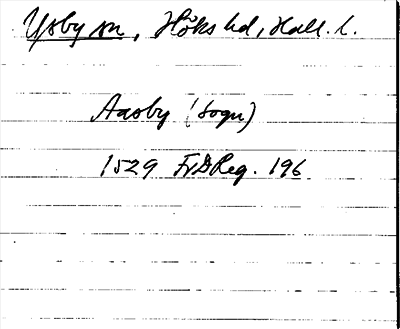 Ysby sn, Höks hd, Hall. l.
Aasby (Sogn)
1529 FrDReg. 196